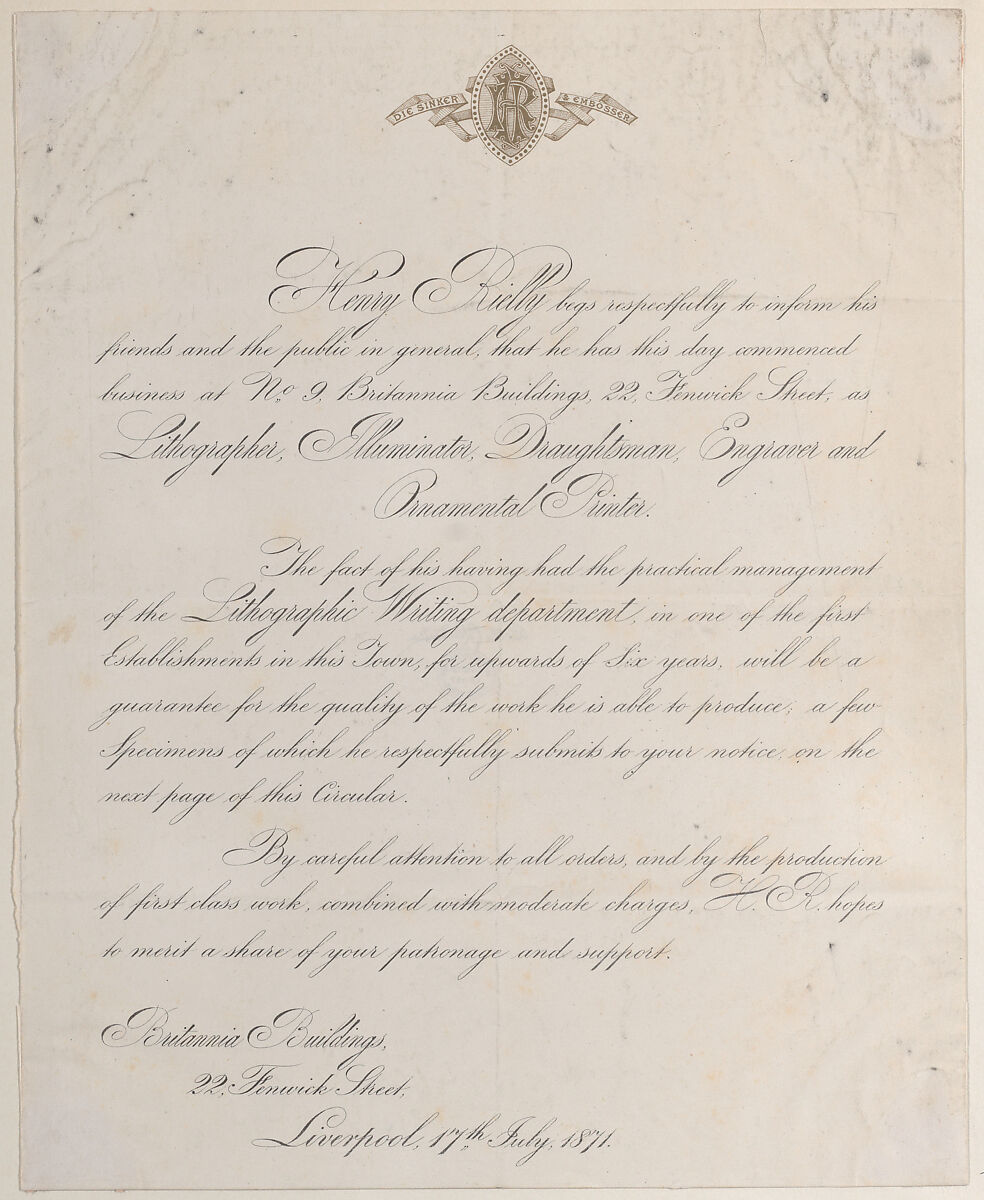 DIE SINKER HR & EMBOSSER
Henry Rielly begs respectfully to inform his
friends and the public in general, that he has this day commenced
business at No. 9, Britannia Buildings, 22, Fenwick Street, as
Lithographer, Illuminator, Draughtsman, Engraver and
Ornamental Printer.
The fact of his having had the practical management
of the Lithographic Writing department, in one of the first
Establishments in this Town, for upwards of Six years, will be a
guarantee for the quality of the work he is able to produce; a few
Specimens of which he respectfully submits to your notice, on the
next page of this Circular.
By careful attention to all orders, and by the production
of first class work, combined with moderate charges, H. R. hopes
to merit a share of your patronage and support.
Britannia Buildings,
22, Fenwick Street,
Liverpool, 17th July, 1871.